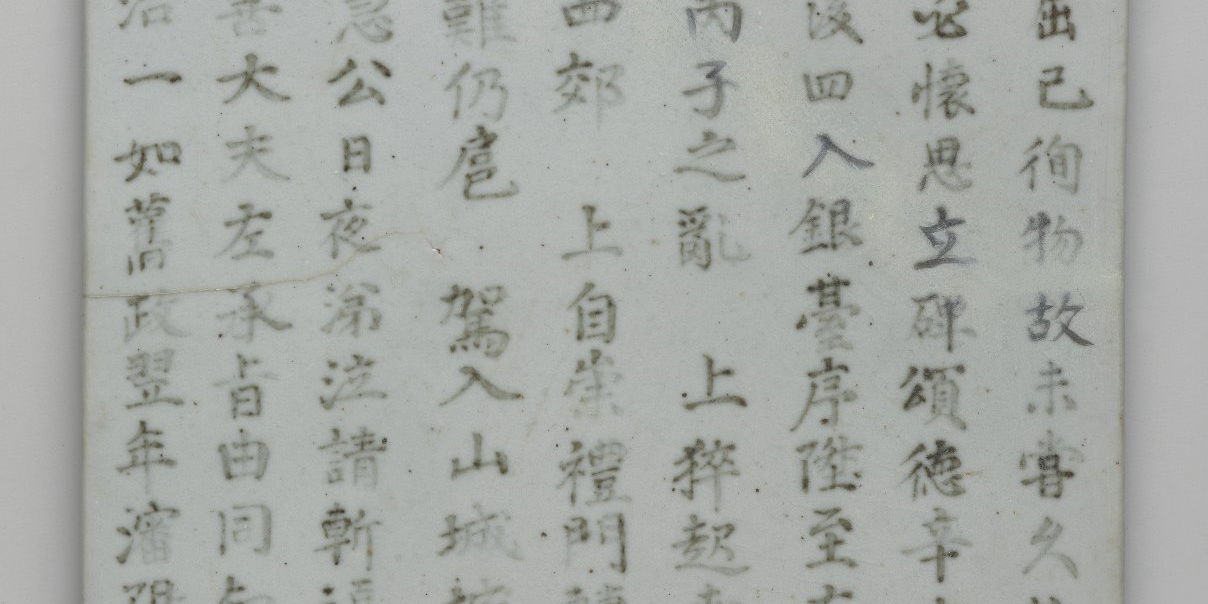 出己徇物故未嘗久
必懷思立碑頌德辛
後四入銀臺序陞至
丙子之亂 上猝起
西郊 上自崇禮門
難仍扈 駕入山城
急公日夜涕泣請斬
大夫左承旨由同
一如舊政翌年瀋陽